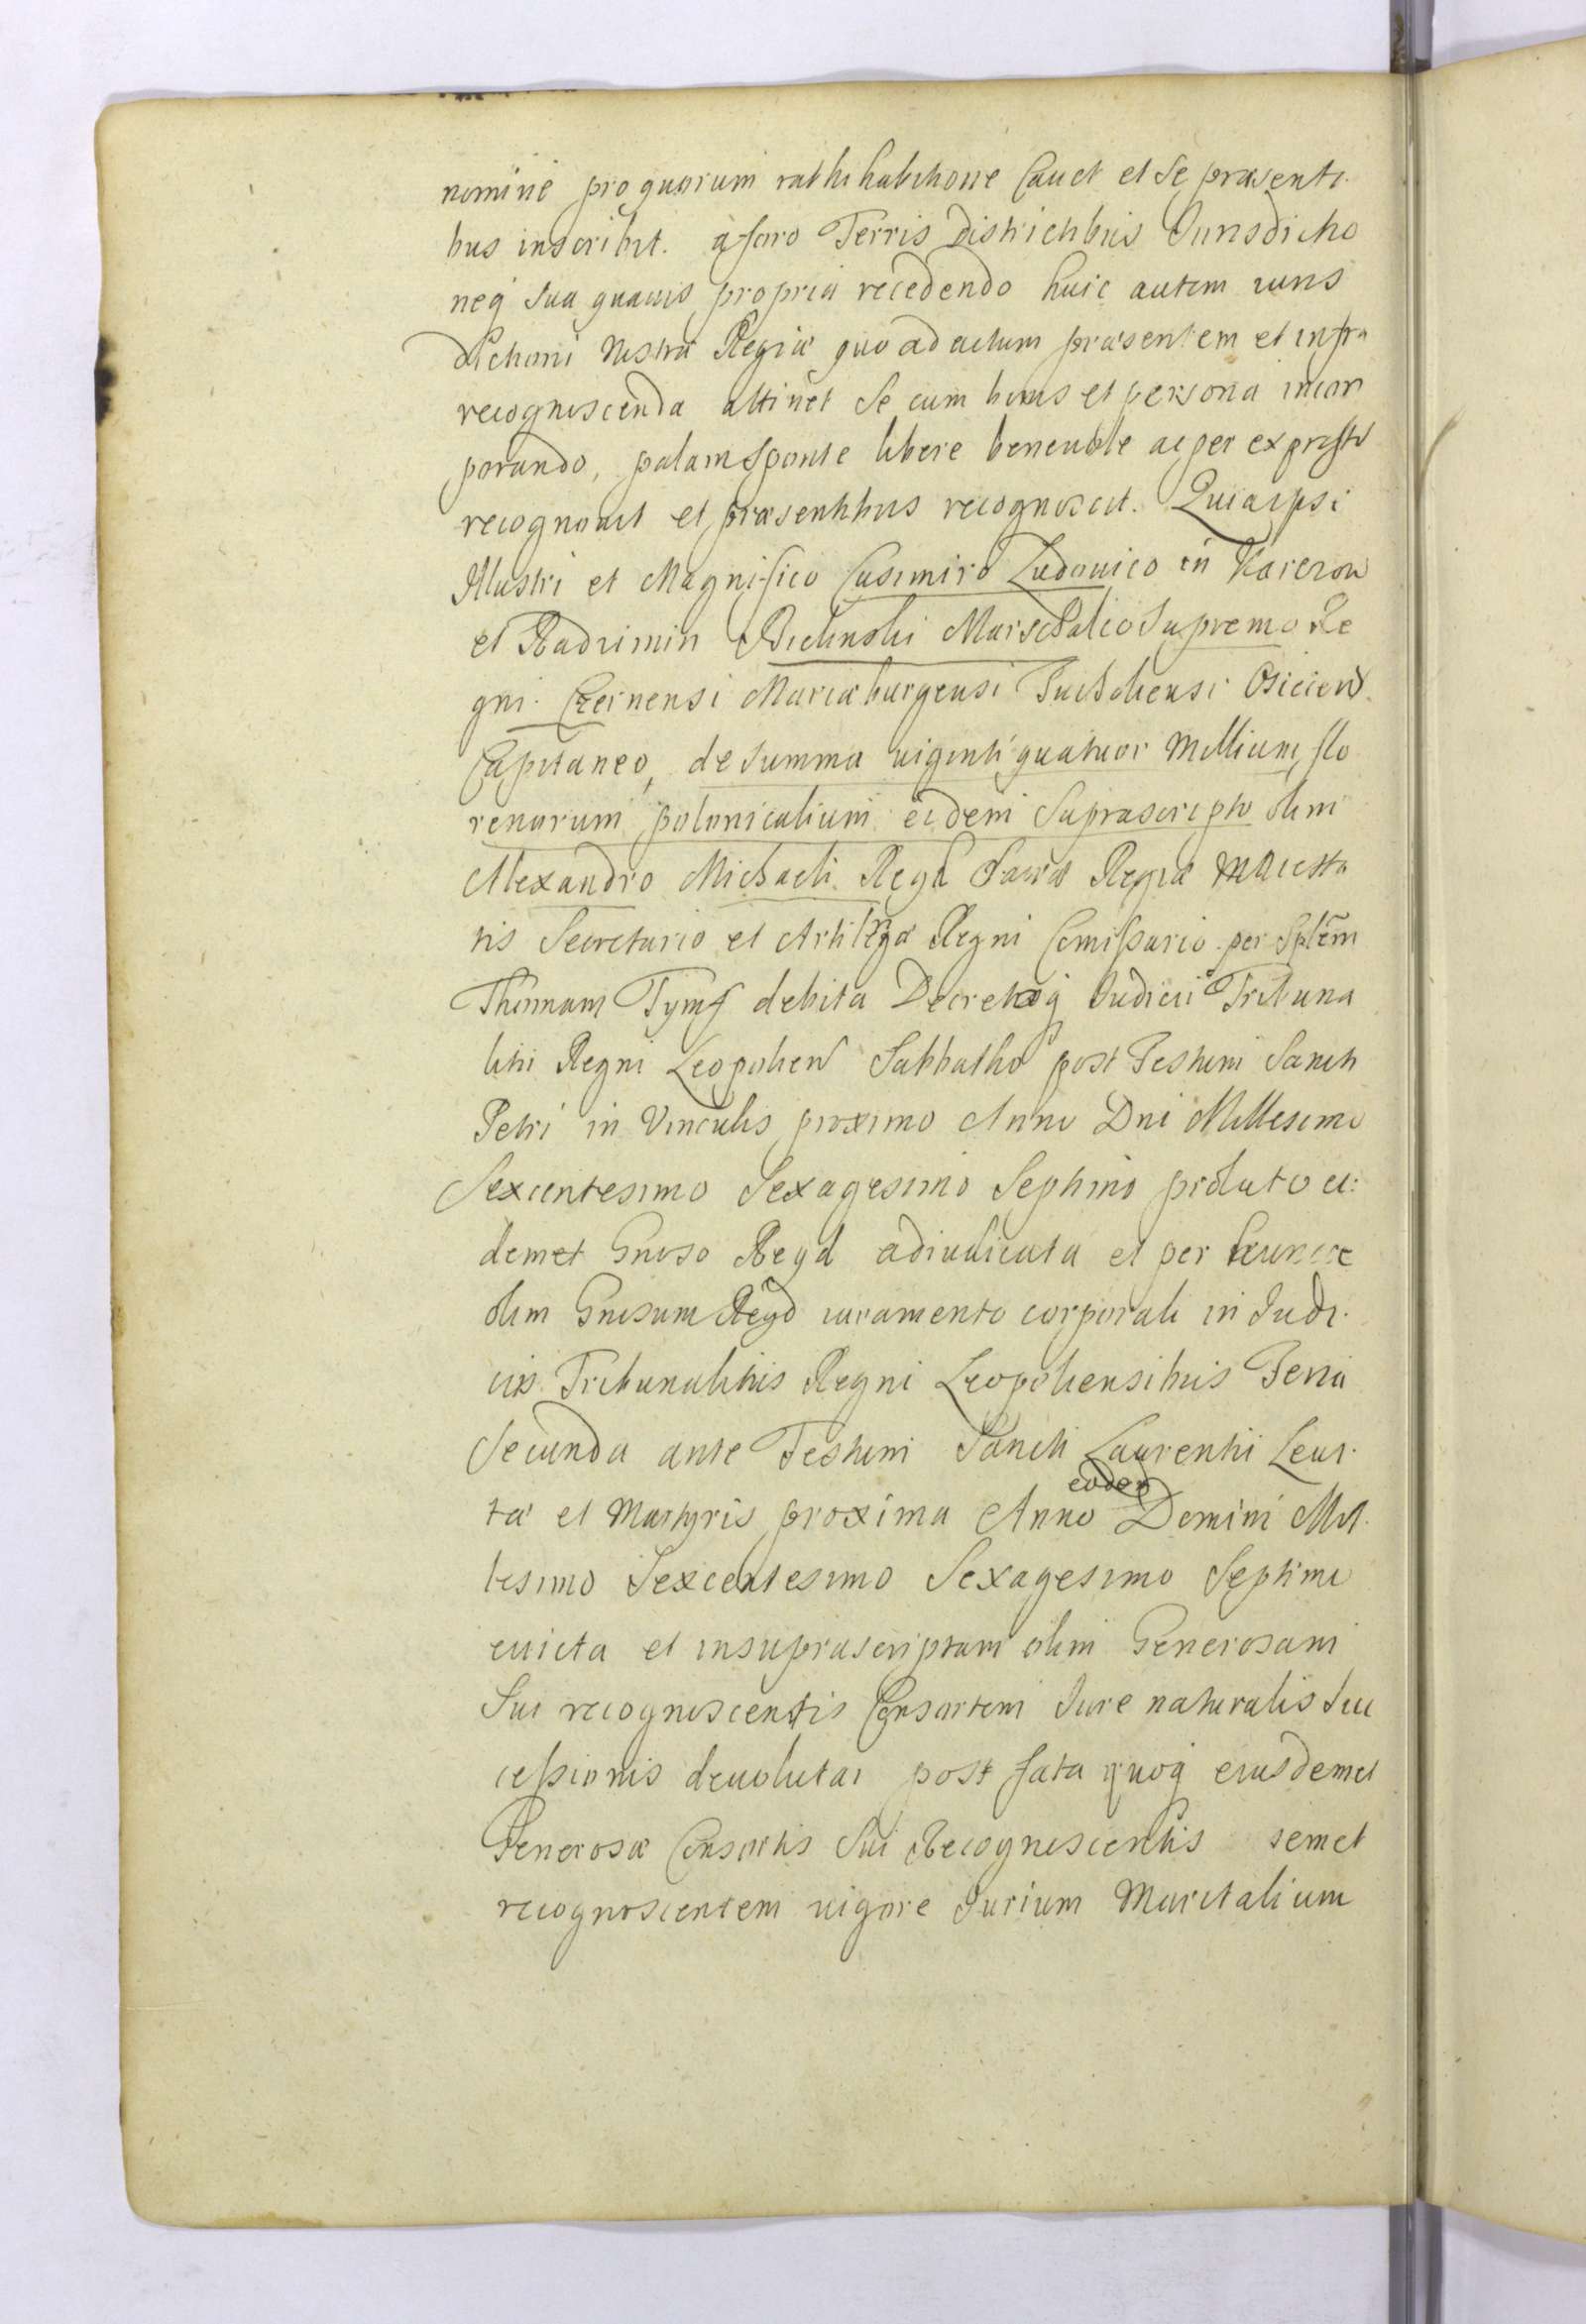 nomine pro quorum rathihabitione Cauet et se præsenti
bus inscribit. à foro Terris Districtibus Iurisdictio
neq sua quauis propria recedendo huic autem iuris
dictioni nostræ Regiæ quo ad actum præsentem et infra
recognoscenda attinet se cum bonis et persona incor
porando, palam sponte libere beneuole ac per expressū
recognouit et præsentibus recognoscit. Quia ipse
Illustri et Magnifico Casimiro Ludouico in Karczow
et Radzimin Bielinski Marschalco Supremo Re
gni. Czernensi Mariæburgensi Tucholiensi Osiecen
Capitaneo, de summa uiginti quatuor Millium flo
renorum polonicalium eidem Suprascripto olim
Alexandro Michaeli Regd Sacræ Regiæ Maiesta
tis Secretario et Artilryæ Regni Comissario per Splēm
Thomam Tymf debita Decretoq Iudicii Tribuna
litii Regni Leopolien Sabbatho post Festum Sancti
Petri in Vinculis proximo Anno Dni Millesimo
Sexcentesimo Sexagesimo Septimo prolato ei:
demet Gnoso Regd adiudicata et per hunc ce
olim Gnosum Regd iuramento corporali in Iudi.
ciis Tribunalitiis Regni Leopoliensibus Feria
Secunda ante Festum Sancti Laurentii Leui.
tæ et Martyris proxima Anno eodem Domini Mil.
lesimo Sexcentesimo Sexagesimo Septimo
euicta et in suprascriptam olim Generosam
Sui recognoscentis Consortem Iure naturalis suc
cessionis deuoluta post fata quoq eiusdemet
Generosæ Consortis sui Recognoscentis semet
recognoscentem uigore Iurium Maritalium